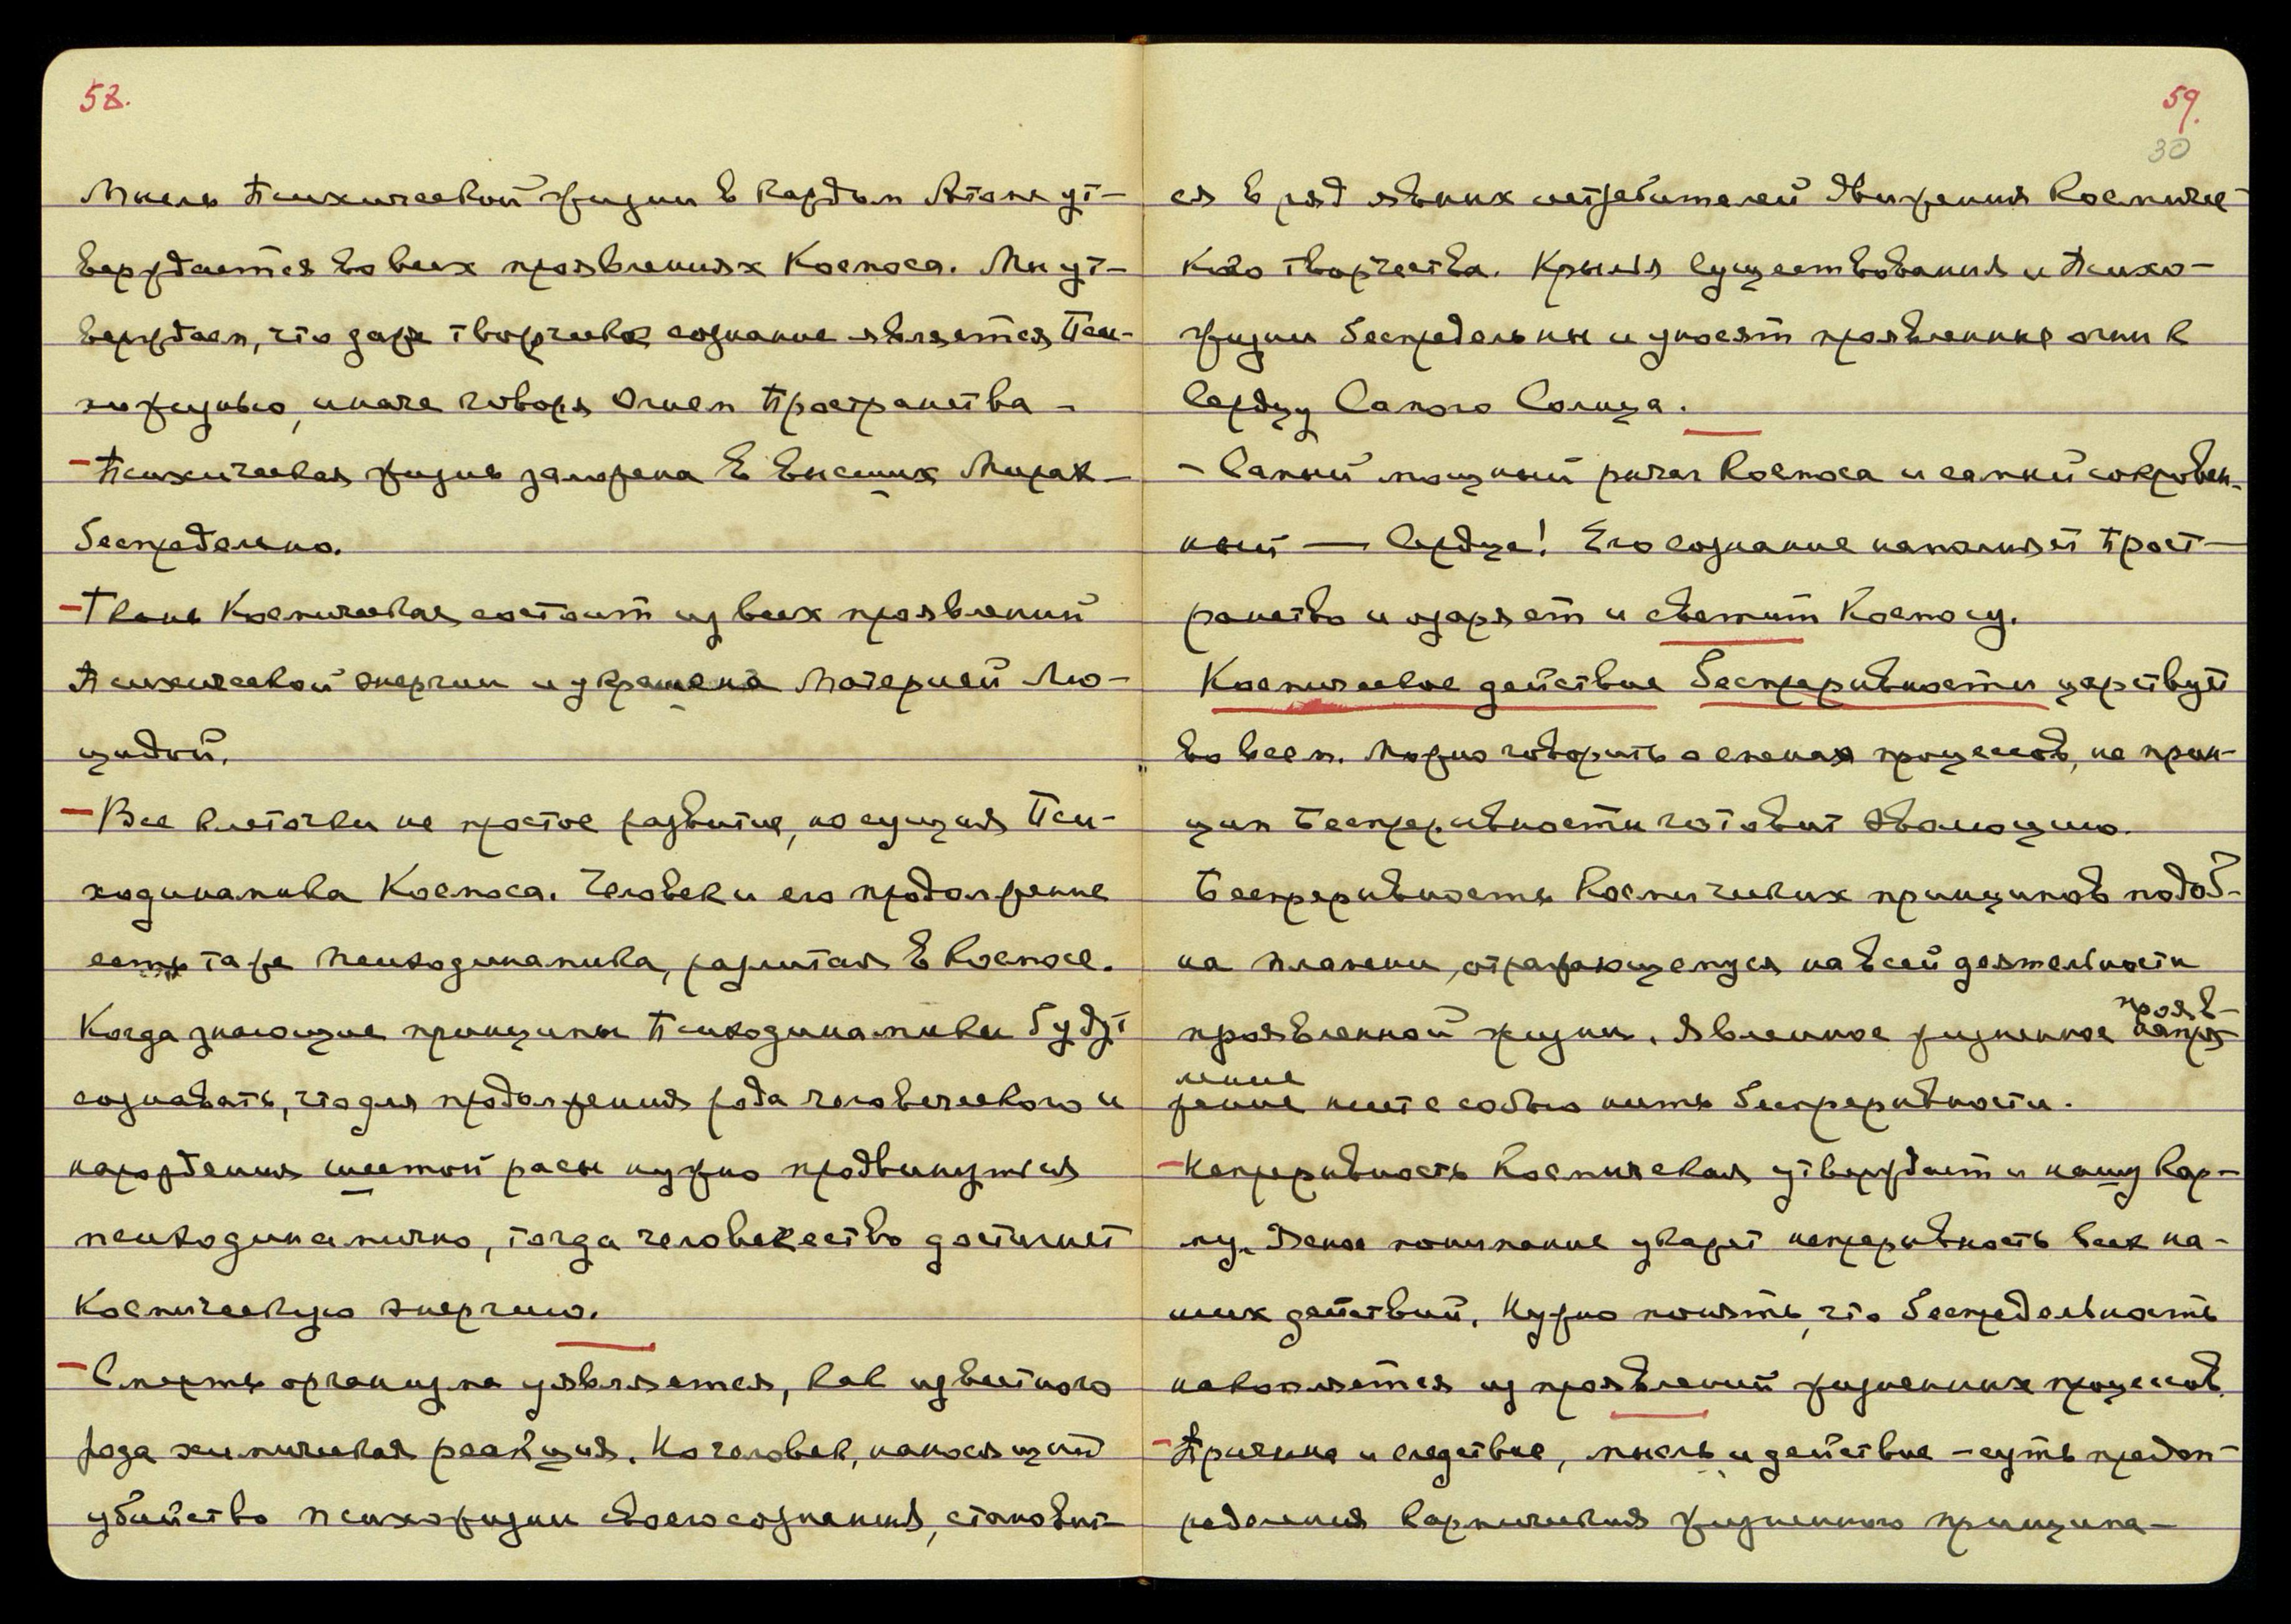 58.
Мысль психической жизни в каждом Атоме ут-
верждается во всех проявлениях Космоса. Мы ут-
верждаем, что даже творческое сознание является Пси-
хожизнью, иначе говоря Огнем Пространства –
– Психическая жизнь заложена в Высших Мирах –
беспредельно.
– Ткань Космическая состоит из всех проявлений
психической энергии и украшена Материей Лю-
цидой.
– Все клеточки не простое развитие, но сущая Пси-
ходинамика Космоса. Человек и его продолжение
есть та же психодинамика, разлитая в Космосе.
Когда знающие принципы Психодинамики будут
сознавать, что для продолжения рода человеческого и
нарождения шестой расы нужно продвинуться
психодинамично, тогда человечество достигнет
Космическую энергию.
– Смерть организма уявляется, как известного
рода химическая реакция. Но человек, наносящий
убийство психожизни своего сознания, становит-
59.
30
ся в ряд явных истребителей движения Космичес-
кого творчества. Крылья существования и Психо-
жизни беспредельны и уносят проявленные огни к
Сердцу Самого Солнца.
– Самый мощный рычаг Космоса и самый сокровен-
ный — Сердце! Его сознание наполняет Прост-
ранство и озаряет и светит Космосу.
Космическое действие беспрерывности царствует
во всем. Можно говорить о сменах процессов, но прин-
цип Беспрерывности готовит эволюцию.
Беспрерывность Космических принципов подоб-
на пламени, отражающемуся на всей деятельности
проявленной жизни. Явленное жизненное напря-
прояв-
жение несет с собою нить беспрерывности.
ление
– Непрерывность Космическая утверждает и нашу Кар-
му. Ясное понимание укажет непрерывность всех на-
ших действий. Нужно понять, что беспредельность
накопляется из проявлений жизненных процессов.
– Причина и следствие, мысль и действие – суть предоп-
ределения кармические жизненного принципа –